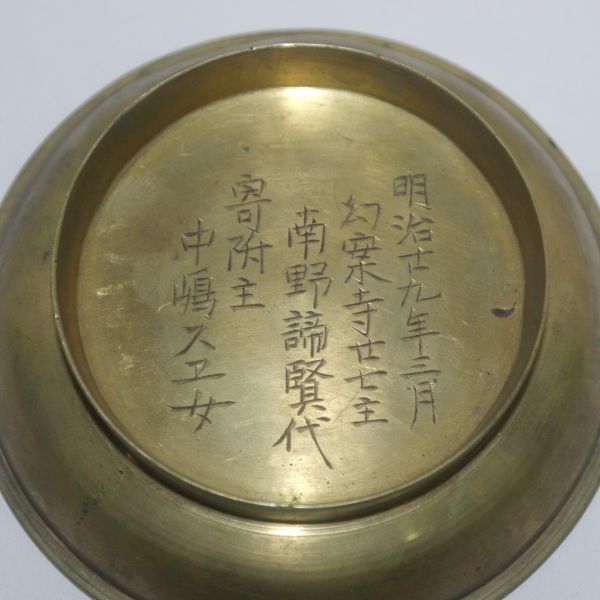 明治廿九年三月
幻案寺廿七主
南野諦賢代
寄附主
中嶋スヱ女